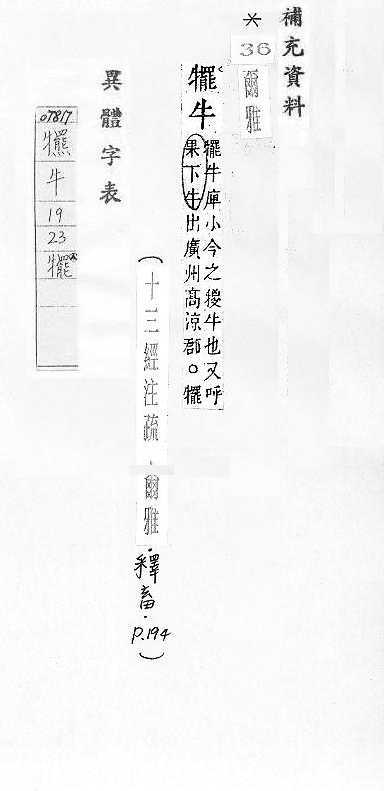 補充資料
＊
36
爾雅
𤜣牛
犤牛庳小今之㹶牛也又呼
果下牛出廣州高涼郡○犤
（十三經注疏．爾雅．釋畜．P.194）
異體字表
07817
牛
19
23
犤